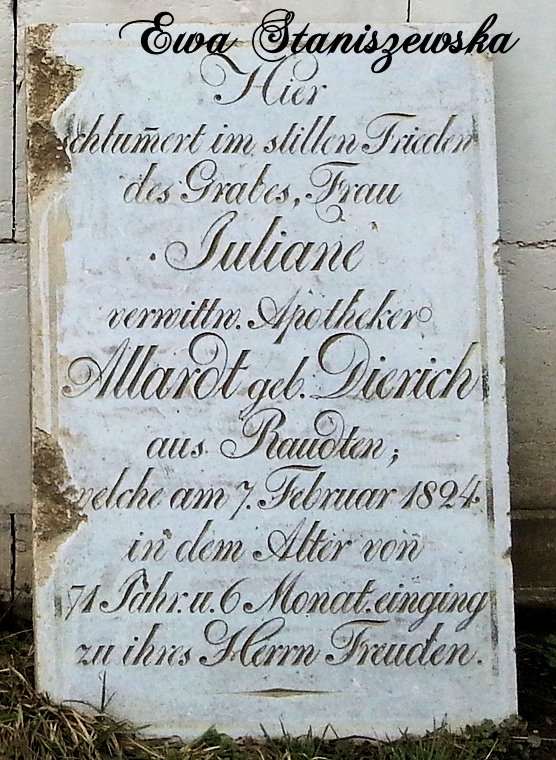 Ewa Staniszewska
Hier
schlum̅ert im stillen Frieden
des Grabes, Frau
Juliane
verwittw. Apotheker
Allardt geb. Dierich
aus Raudten;
welche am 7. Februar 1824
in dem Alter von
71 Jahr. u. 6 Monat. einging
zu ihres Herrn Freuden.